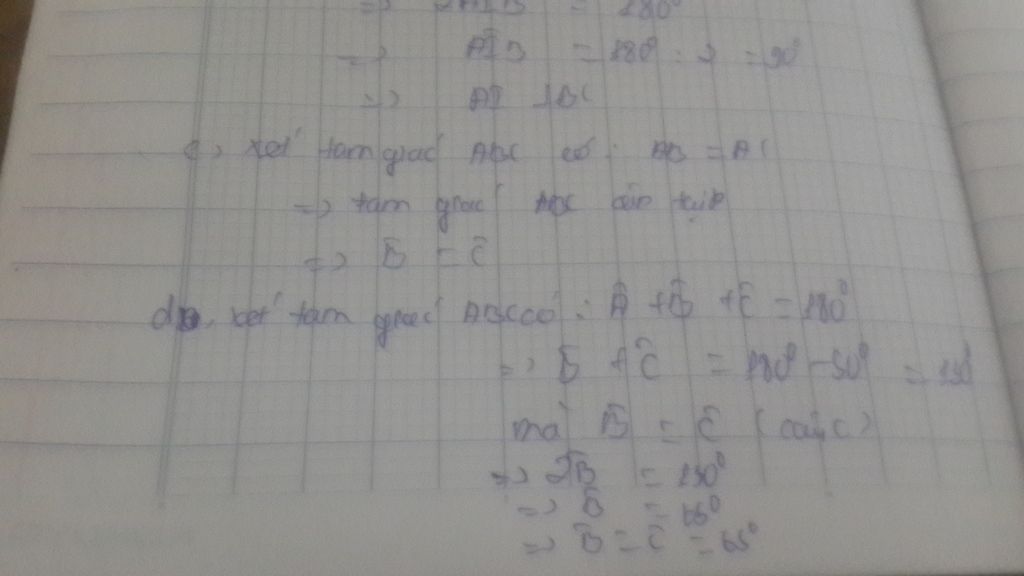 => 2AIB = 180°
=> AIB = 180° : 2 = 90°
=> AI ⊥ BC
c, xét tam giác ABC có : AB = AC
=> tam giác ABC cân tại A
=> B̂ = Ĉ
d, xét tam giác ABC có : Â + B̂ + Ĉ = 180°
=> B̂ + Ĉ = 180° - 50° = 130°
mà B̂ = Ĉ (câu c)
=> 2B̂ = 130°
=> B̂ = 65°
=> B̂ = Ĉ = 65°